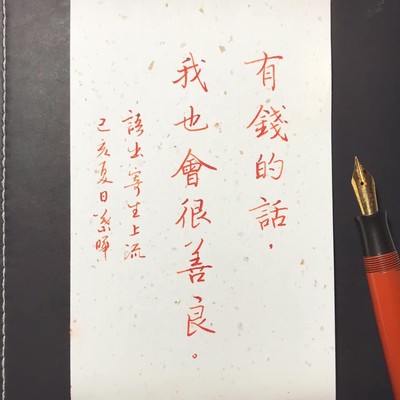 有錢的話，
我也會很善良。
語出寄生上流
己亥夏日